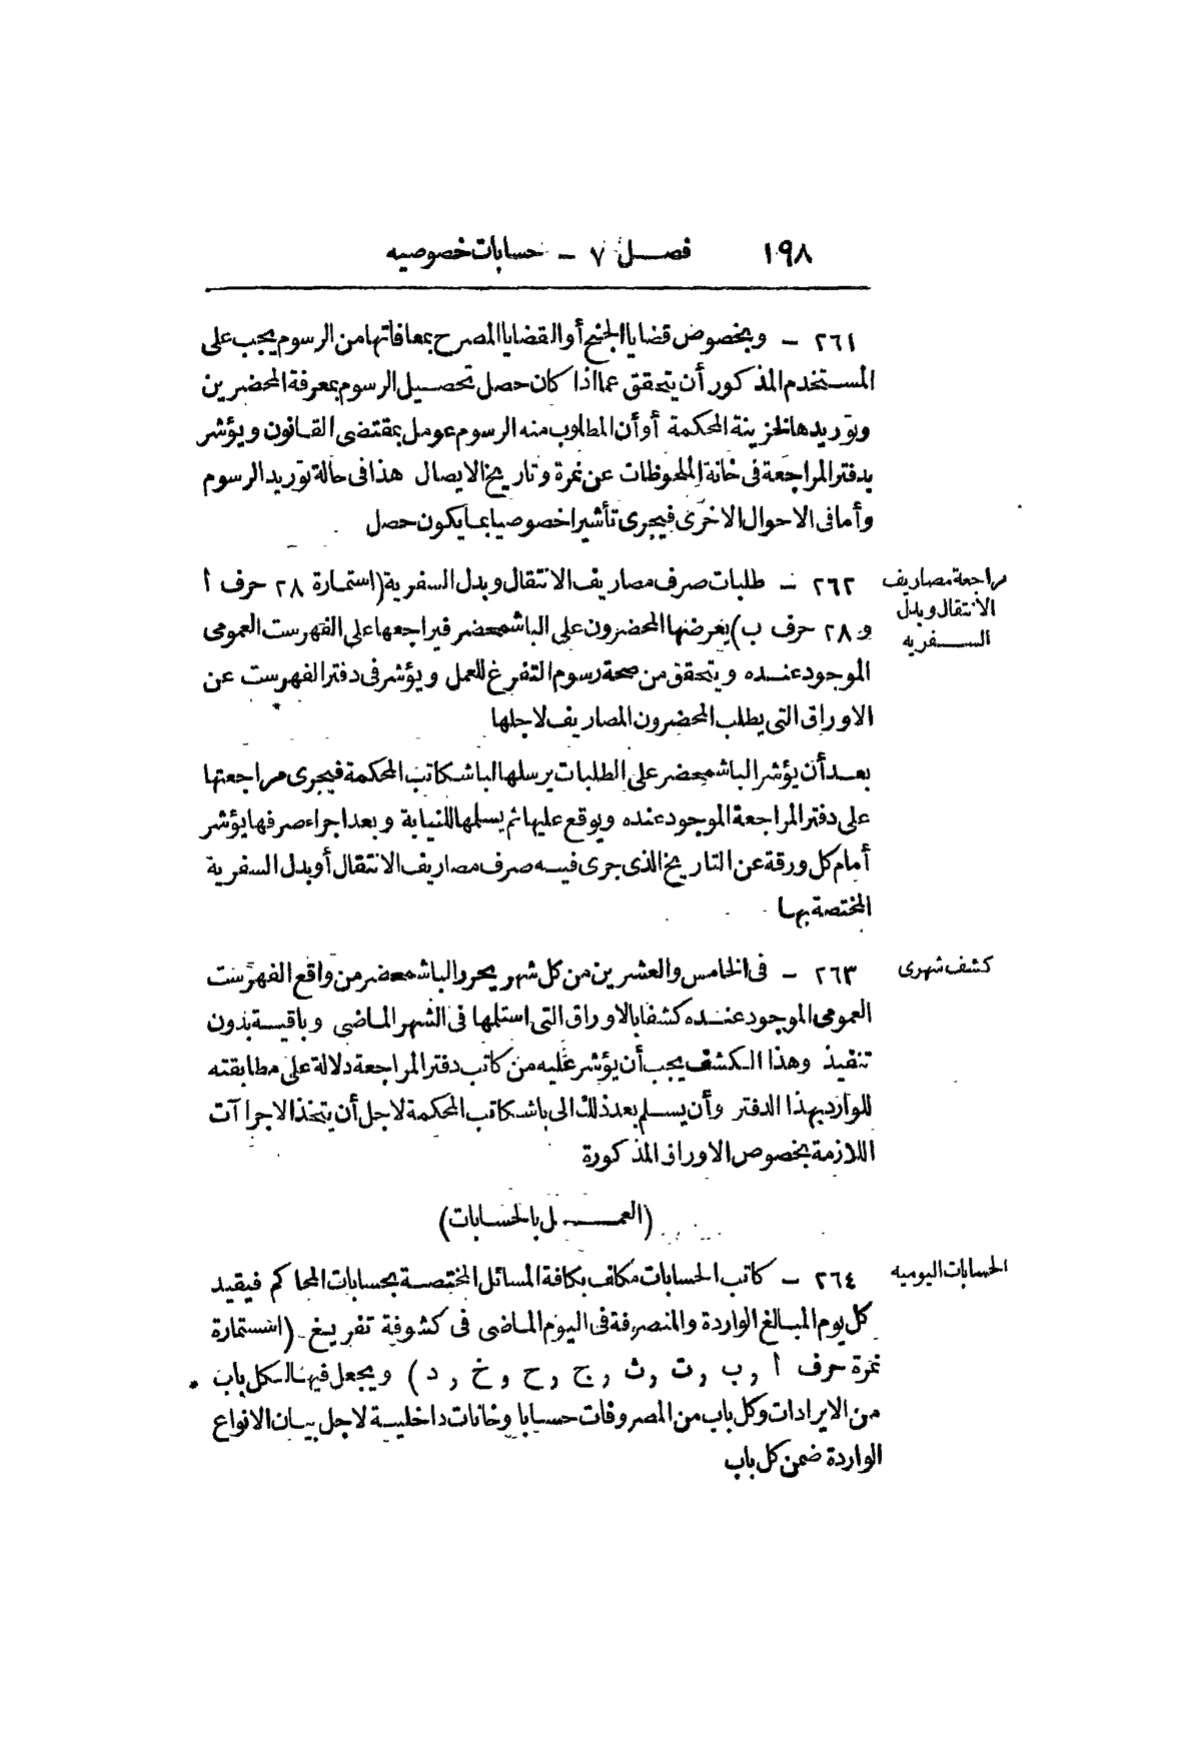 ١٩٨ فصل ٧ – حسابات خصوصيه
٢٦١ – وبخصوص قضايا الجنح أو القضايا المصرح بمعافاتها من الرسوم يجب على
المستخدم المذكور أن يتحقق عما اذا كان حصل تحصيل الرسوم بمعرفة المحضرين
وتوريدها لخزينة المحكمة أو أن المطلوب منه الرسوم عومل بمقتضى القانون ويؤشر
بدفتر المراجعة فى خانة الملحوظات عن نمرة وتاريخ الايصال هذا فى حالة توريد الرسوم
وأما فى الاحوال الاخرى فيجرى تأشيرا خصوصيا بما يكون حصل
مراجعة مصاريف
الانتقال وبدل
السفريه
٢٦٢ – طلبات صرف مصاريف الانتقال وبدل السفرية (استمارة ٢٨ حرف أ
و ٢٨ حرف ب) يعرضها المحضرون على الباشمحضر فيراجعها على الفهرست العمومى
الموجود عنده ويتحقق من صحة رسوم التفرغ للعمل ويؤشر فى دفتر الفهرست عن
الاوراق التى يطلب المحضرون المصاريف لاجلها
بعد أن يؤشر الباشمحضر على الطلبات يرسلها لباشكاتب المحكمة فيجرى مراجعتها
على دفتر المراجعة الموجود عنده ويوقع عليها ثم يسلمها للنيابة وبعد اجراء صرفها يؤشر
أمام كل ورقة عن التاريخ الذى جرى فيه صرف مصاريف الانتقال أو بدل السفرية
المختصة بها
كشف شهرى
٢٦٣ – فى الخامس والعشرين من كل شهر يحرر الباشمحضر من واقع الفهرست
العمومى الموجود عنده كشفا بالاوراق التى استلمها فى الشهر الماضى وباقية بدون
تنفيذ وهذا الكشف يجب أن يؤشر عليه من كاتب دفتر المراجعة دلالة على مطابقته
للوارد بهذا الدفتر وأن يسلم بعد ذلك الى باشكاتب المحكمة لاجل أن يتخذ الاجراآت
اللازمة بخصوص الاوراق المذكورة
(العمل بالحسابات)
الحسابات اليوميه
٢٦٤ – كاتب الحسابات مكلف بكافة المسائل المختصة بحسابات المحاكم فيقيد
كل يوم المبالغ الواردة والمنصرفة فى اليوم الماضى فى كشوفة تفريغ (استمارة
نمرة حرف أ و ب و ت و ث و ج و ح و خ و د) ويجعل فيها لكل باب
من الايرادات وكل باب من المصروفات حسابا وخانات داخلية لاجل بيان الانواع
الواردة ضمن كل باب